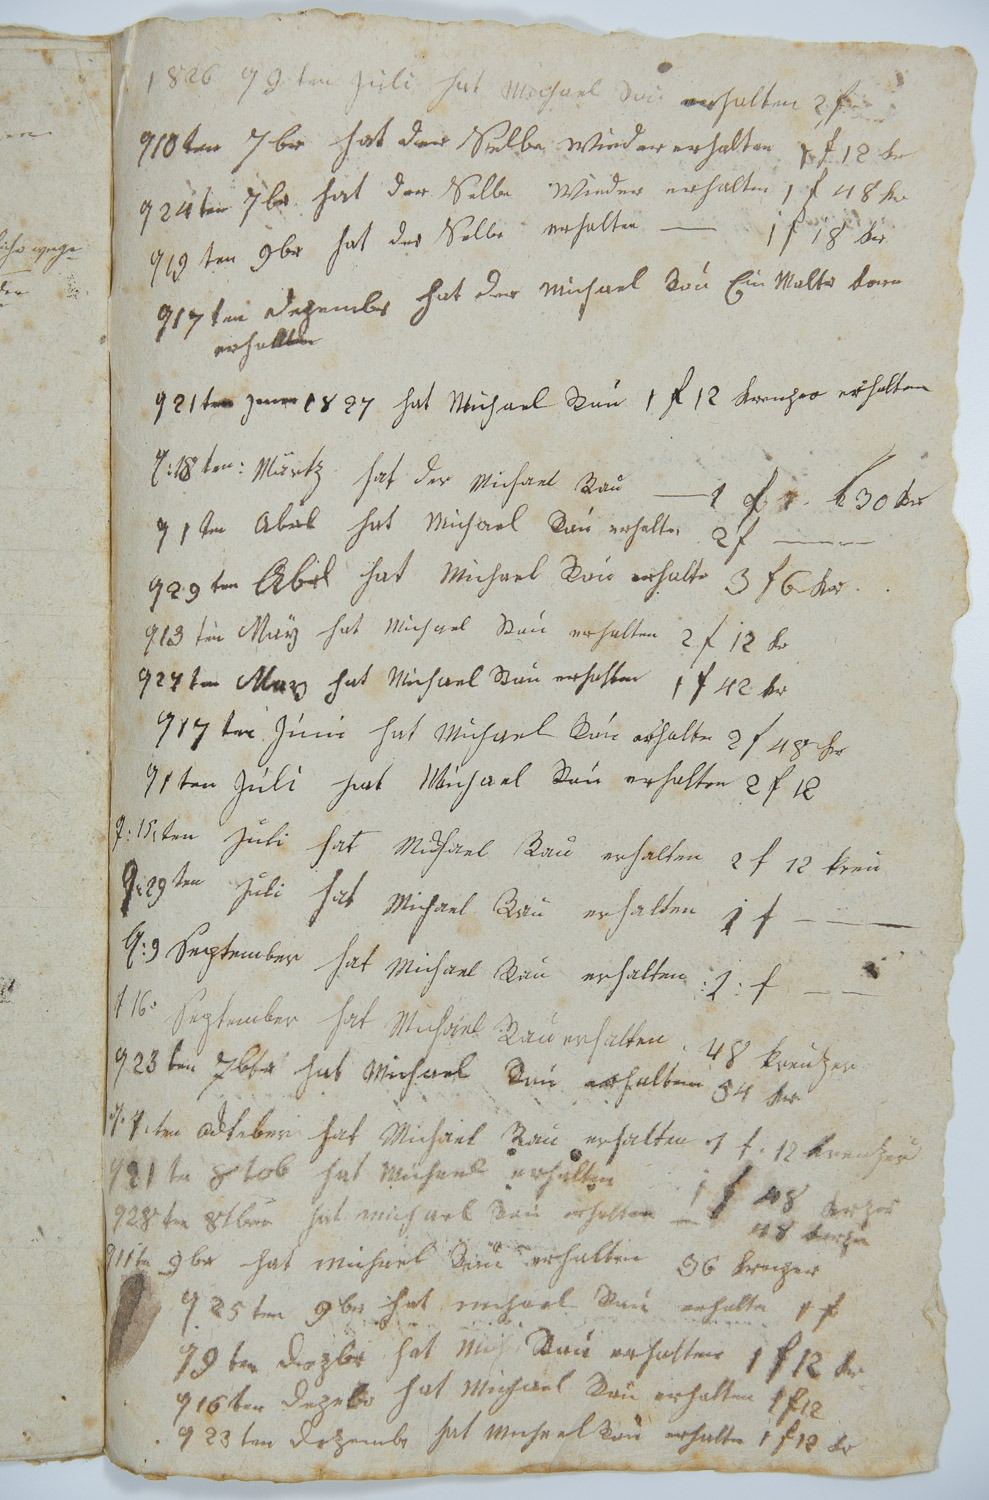 1826 d 9 ten Juli hat Michael Rau erhalten 2 f
d 10 ten 7br hat der Selbe Wieder erhalten 1 f 12 kr
d 24 ten 7br hat der Selbe Wieder erhalten 1 f 48 kr
d 19 ten 9br hat der Selbe erhalten — 1 f 18 kr
d 17 ten Dezember hat der Michael Rau Ein Malter korn
erhalten
d 21 ten 1827 hat Michael Rau 1 f 12 Kreuzer erhalten
d: 18 ten: Märtz hat der Michael Rau — 1 f 30 kr
d 1 ten Abril hat Michael Rau erhalten 2 f —
d 29 ten Abril hat Michael Rau erhalte 3 f 6 kr
d 13 ten Maÿ hat Michael Rau erhalten 2 f 12 kr
d 27 ten May hat Michael Rau erhalten 1 f 42 kr
d 17 ten Juni hat Michael Rau erhalten 2 f 48 kr
d 1 ten Juli hat Michael Rau erhalten 2 f 12
d: 15: ten Juli hat Michael Rau erhalten 2 f 12 kreu
d: 29 ten Juli hat Michael Rau erhalten 1 f —
d: 9 September hat Michael Rau erhalten :1: f —
d 16 September hat Michael Rau erhalten 48 kreutzer
d 23 ten 7ber hat Michael Rau erhalten 54 kr
d. 7. ten October hat Michael Rau erhalten 1 f. 12 kreutzer
d 21 te 8tob hat Michael erhalten 1 f 48
d 28 ten 8tber hat Michael Rau erhalten — 48
d 11 te 9br hat Michael Rau erhalten 36 kreuzer
d 25 ten 9br hat Michael Rau erhalte 1 f
d 9 ten Dezbr hat Rau erhalten 1 f 12 kr
d 16 ten Dezebr hat Michael Rau erhalten 1 f 12
d 23 ten Dezembr hat Michael Rau erhalte 1 f 12 kr